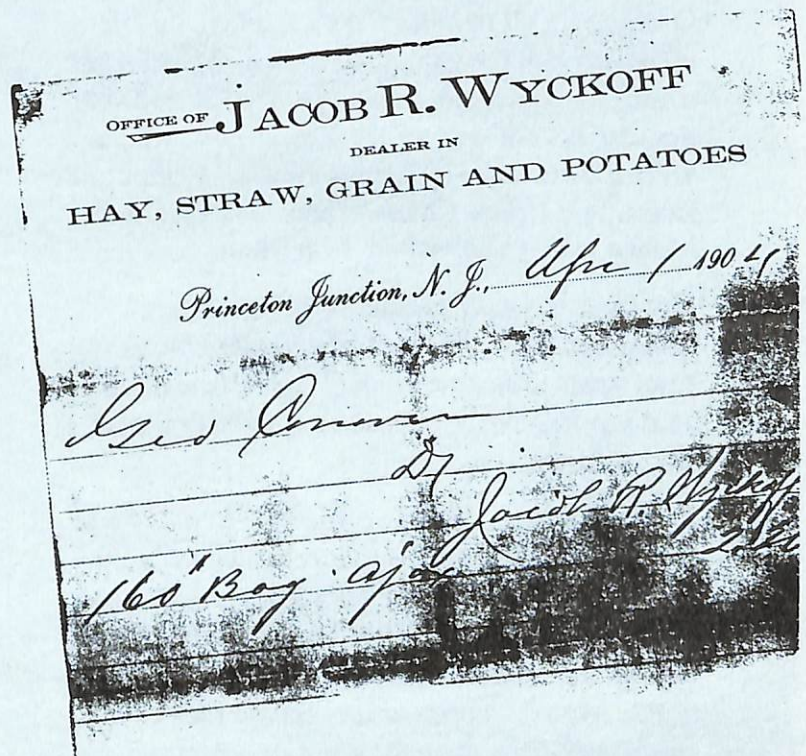 OFFICE OF JACOB R. WYCKOFF
DEALER IN
HAY, STRAW, GRAIN AND POTATOES
Princeton Junction, N. J., Apr 1 1904
Geo Conover
Dr
Jacob R Wyckoff
160# Bag Ajax